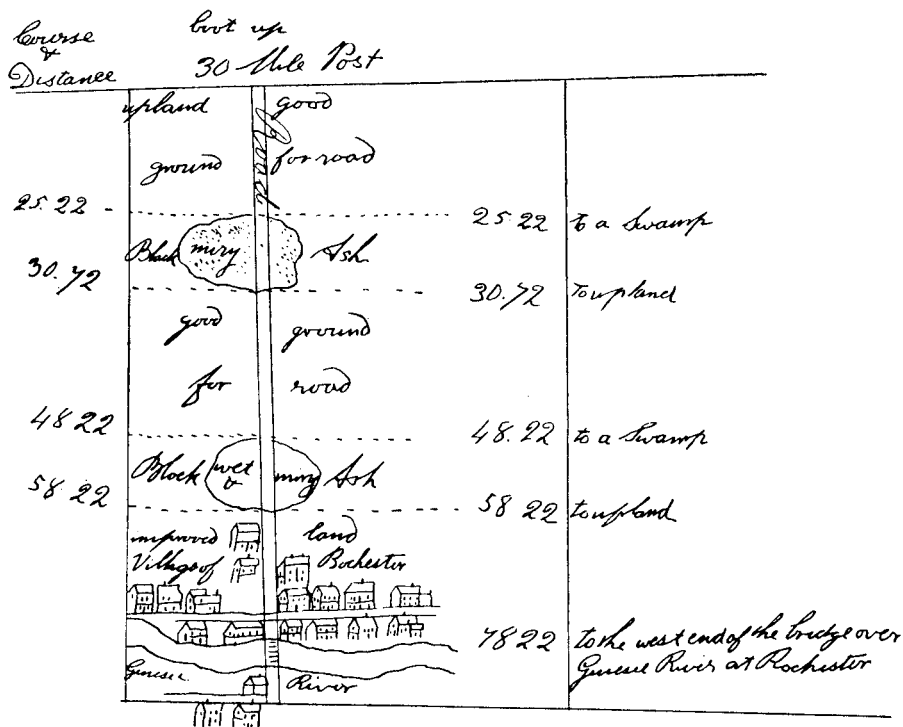 Course
&
Distance
30 Mile Post
upland good
Road
ground for road
25.22 25 22 to a Swamp
Black miry Ash
30.72 30.72 to upland
good ground
for road
48 22 48.22 to a Swamp
Black wet & miry Ash
58 22 58 22 to upland
improved land
Village of Rochester
78 22 to the west end of the bridge over
Genesee River at Rochester
Genesee River